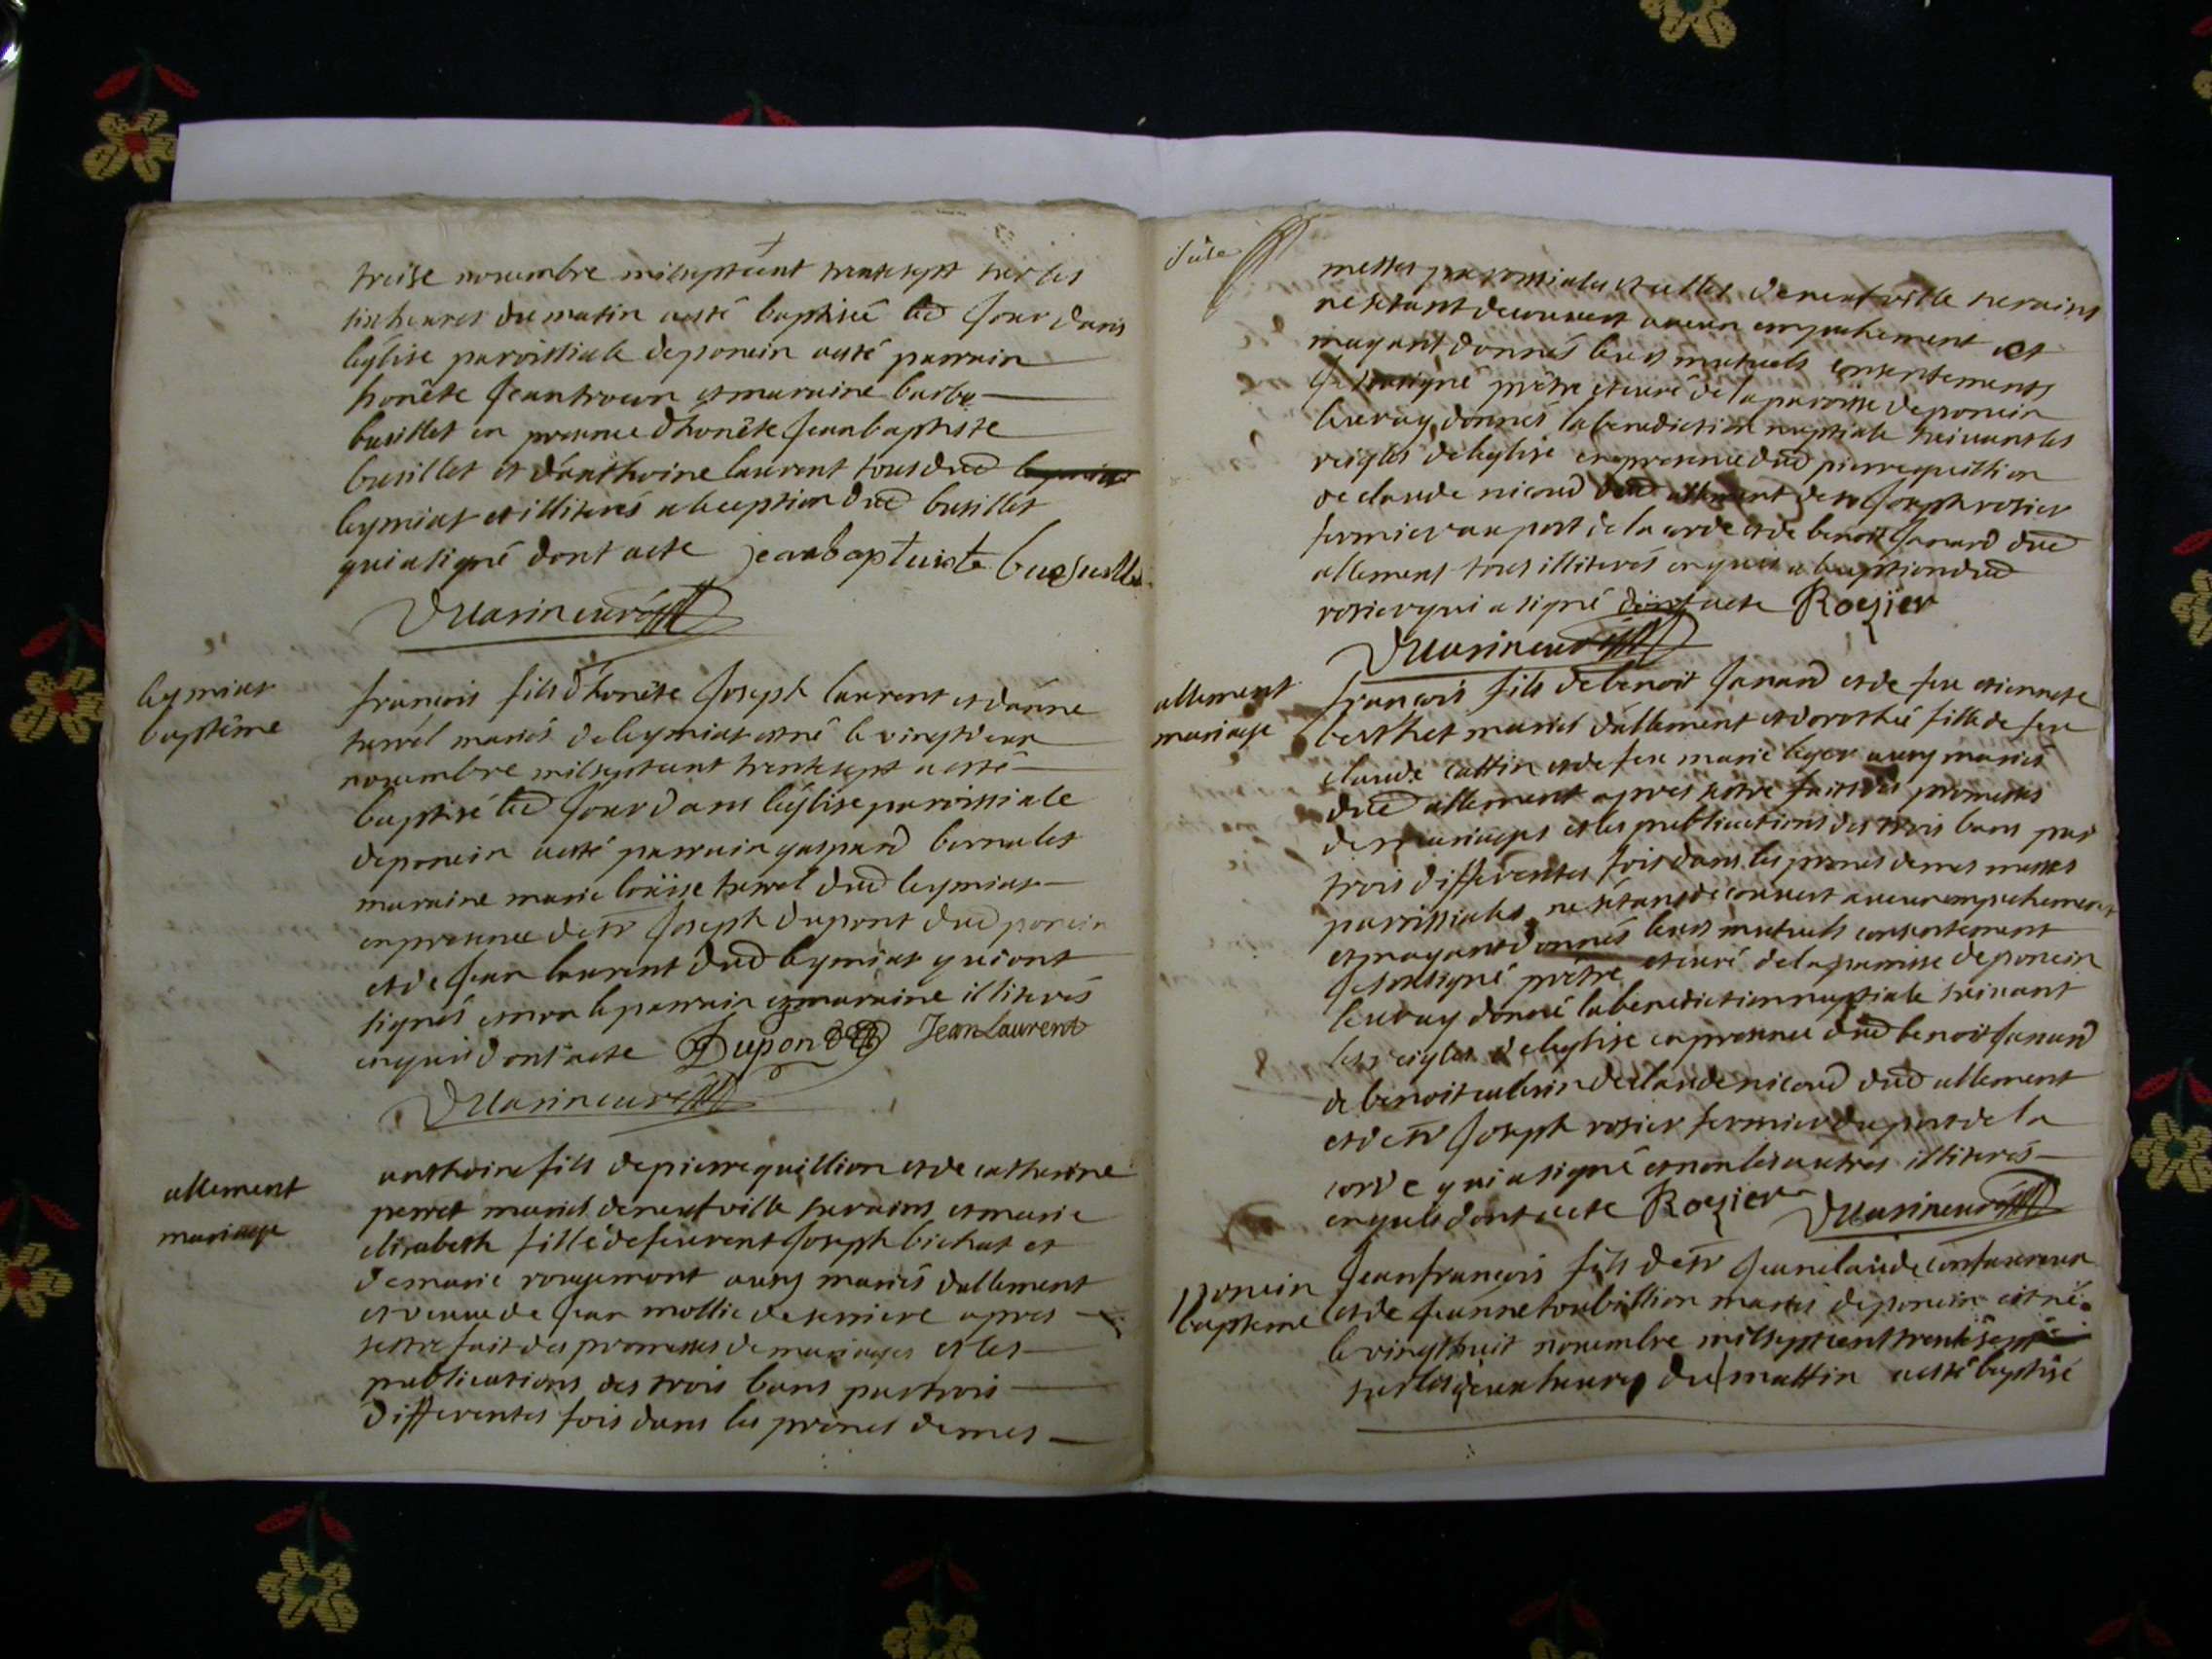 treise novembre milseptcent trentesept sur les
six heures du matin a esté baptisée led jour dans
léglise paroissiale deponcin aesté parrain
honête Jean troccon et maraine barbe
busillet en presence dhonête Jeanbaptiste
busillet et danthoine laurent tous dud
leymiat et illiterés aleception dud busillet
qui a signé dont acte jeanbaptiste
leymiat
baptême
françois fils dhonête Joseph laurent et danne
tarrel mariés de leymiat est né le vingtdeux
novembre milseptcent trentesept a esté
baptisé led jour dans léglise paroissiale
deponcin aesté parrain gaspard bernalet
maraine marie loüise tarrel dud leymiat
en presence de sr Joseph dupont dud poncin
et de Jean laurent dud leymiat qui ont
signés et non le parrain et maraine illiterés
enquis dont acte Dupon Jean Laurent
allement
mariage
anthoine fils de pierre quillion et de catherine
perret mariés deneufville sur ains et marie
elizabeth fille de feu vent Joseph bichat et
de marie rougemont aussy mariés dallement
et veuve de Jean mollie de serriere apres
sestre fait des promesses de mariages et les
publications des trois bans par trois
differentes fois dans les prones de mes
messes paroissiales et celles deneufville sur ains
ne sétant decouvert aucun empechement et
mayant donnés leurs mutuels consentements
Je soussigné prêtre et curé de la paroisse deponcin
leur ay donnés la benediction nuptiale suivant les
reigles de léglise en presence dud pierre quillion
de claude nicoud dud allement de sr Joseph rosier
fermier au port de la corde et de benoit Janard dud
allement tous illiterés enquis a leception dud
rosier qui a signé dont acte Rozier
allement
mariage
françois fils de benoit Janard et de feu etiennete
berthet mariés dallement et dorothée fille de feu
claude cattin et de feu marie leger aussy mariés
dud allement apres sestre fait des promesses
de mariages et les publications des trois bans par
trois differentes fois dans les prones de mes messes
paroissiales ne sétans decouvert aucun empechement
et mayant donnés leurs mutuels consentement
Je soussigné prêtre et curé de la paroisse deponcin
leur ay donné la benediction nuptiale suivant
les reigles de léglise en presence dud benoit Janard
de benoit de claude nicoud dud allement
et de sr Joseph rosier fermier du port de la
corde qui a signé et non les autres illiterés
enquis dont acte Rozier
poncin
baptême
Jeanfrançois fils de sr Jeanclaude
et de Jeanne toubillion mariés deponcin est né
le vingthuit novembre milseptcent trentesept
sur les deux heures du mattin aesté baptisé